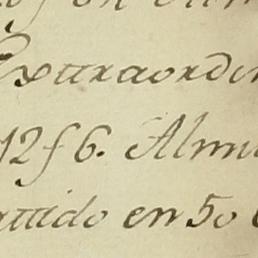 Extraordin
12 f 6. Almu
attido en 50